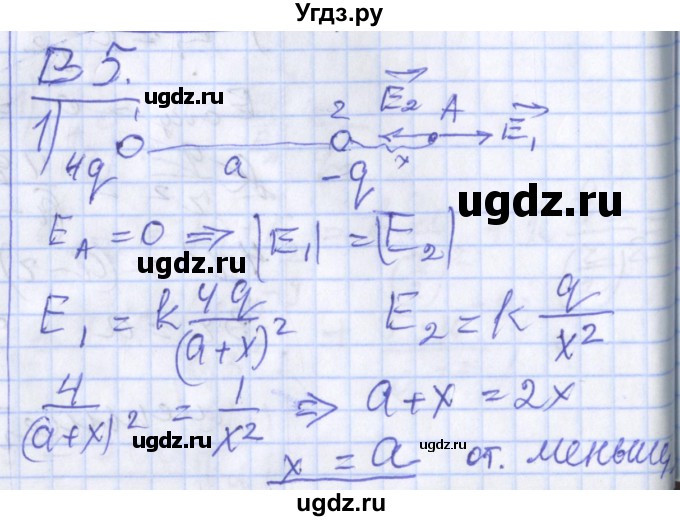 Угдз.ру
В 5.
ugdz.ru
1) 1 2 E₂ A E₁
4q a -q x
ugdz.ru
E_A = 0 => |E₁| = |E₂|
ugdz.ru
E₁ = k 4q/(a+x)² E₂ = k q/x²
4/(a+x)² = 1/x² => a+x = 2x
ugdz.ru
x = a от. меньш.
ugdz.ru
ugdz.ru